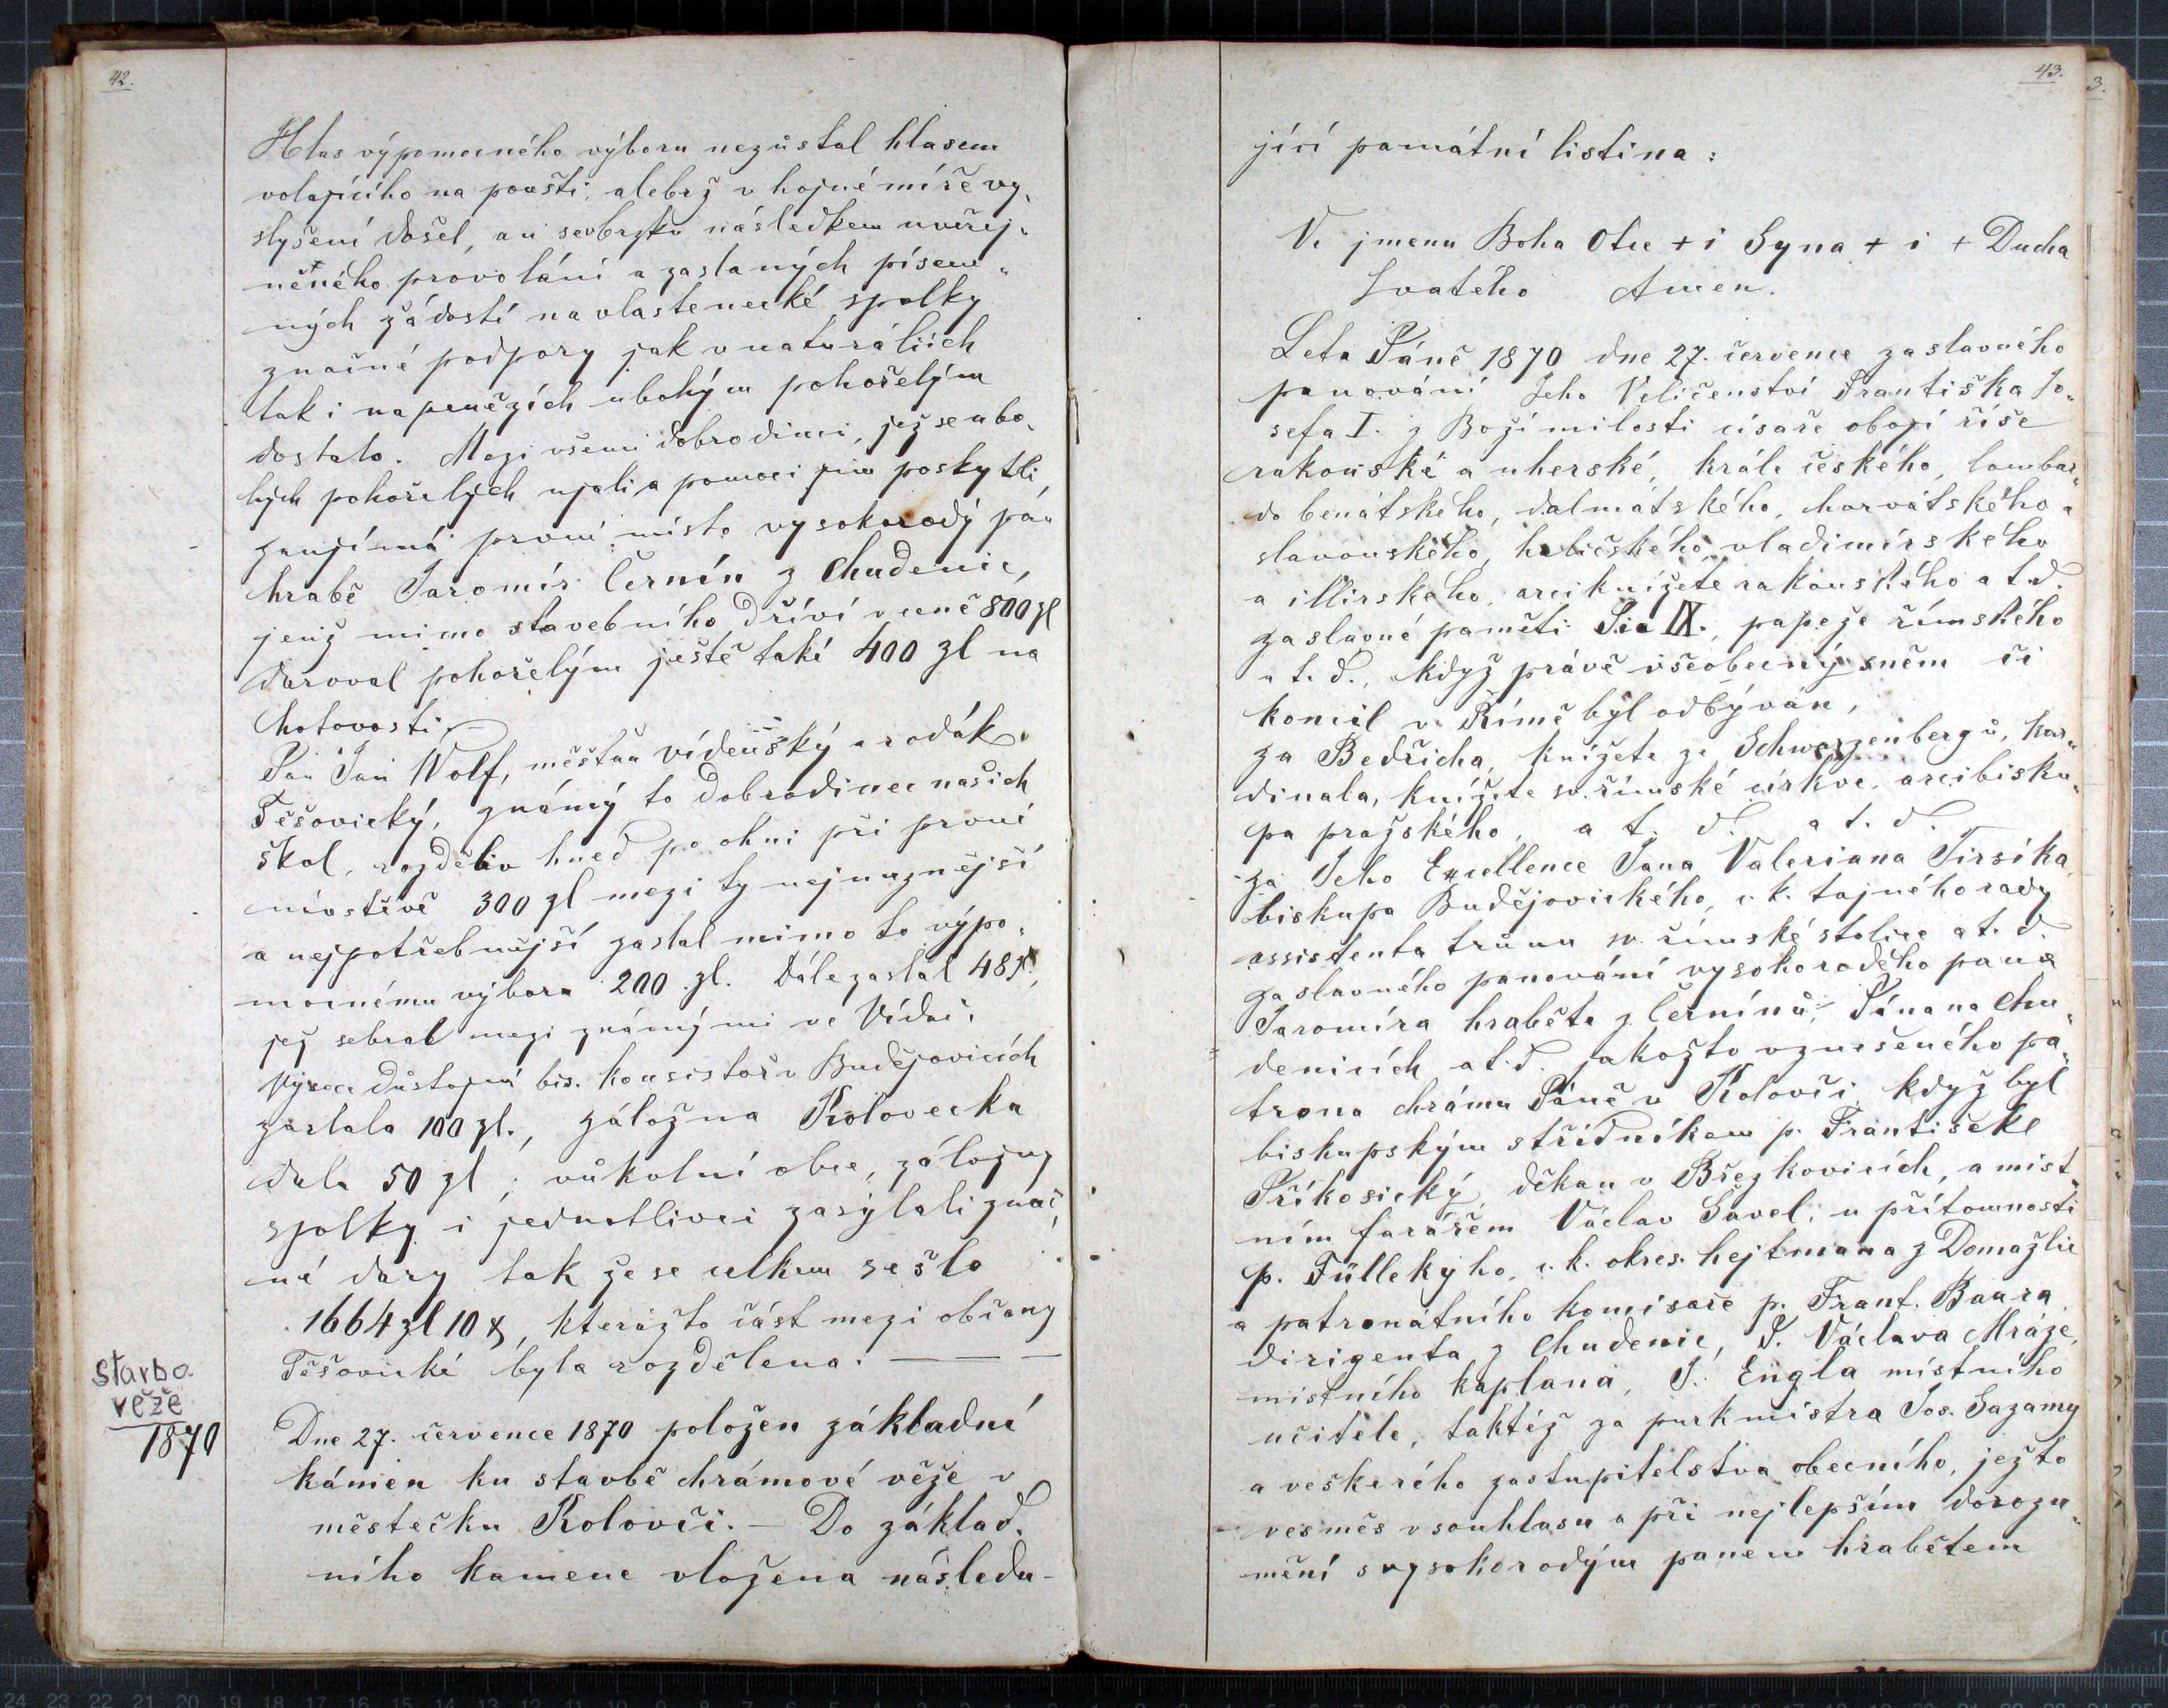 42.
Hlas výpomocného výboru nezůstal hlasem
volajícího na poušti, alebrž v hojné míře vy„
slyšení došel, an se v brzku následkem uveřej„
něného provolání a zaslaných písem„
ných žádostí na vlastenecké spolky
značné podpory jak v naturáliích
tak i na penězích ubohým pohořelým
dostalo. Mezi všemi dobrodinci, jež se ubo„
hých pohořelých ujali a pomoci jim poskytli,
zaujímá první místo vysokorodý pán
hrabě Jaromír Černín z Chudenic,
jenž mimo stavebního dříví v ceně 800 zl
daroval pohořelým ještě také 400 zl na
hotovosti.
Pan Jan Wolf, měšťan vídeňský a rodák
Těšovický, známý to dobrodinec našich
škol, rozděliv hned po ohni při první
návštěvě 300 zl mezi ty nejnuznější
a nejpotřebnější zaslal mimo to výpo„
mocnému výboru 200 zl. Dále zaslal 48 zl.,
jež sebral mezi známými ve Vídni.
Vysoce důstojná bis. konsistoř v Budějovicích
zaslala 100 zl., záložna Kolovecka
dala 50 zl; vůkolní obce, záložny
spolky i jednotlivci zasýlali znač„
né dary tak že se celkem sešlo
1664 zl 10 x, kterážto část mezi občany
Těšovické byla rozdělena. — —
Stavba
věže
1870
Dne 27. července 1870 položen základní
kámen ku stavbě chrámové věže v
městečku Kolovči. — Do základ„
ního kamene vložena následu-
43.
3.
jící památní listina:
Ve jmenu Boha Otce + i Syna + i + Ducha
Svatého Amen.
Leta Páně 1870 dne 27. července za slavného
panování Jeho Veličenství Františka Jo„
sefa I. z Boží milosti císaře obojí říše
rakouské a uherské, krále českého, lombar„
do benátského, dalmátského, horvátského a
slavonského, haličského, vladimírského
a illirského, arciknížete rakouského a t. d.
za slavné paměti Pia IX., papeže římského
a t. d., když právě všeobecný sněm či
koncil v Římě byl odbýván,
za Bedřicha, knížete ze Schwarzenbergů, kar„
dinala, knížete sv. římské církve, arcibisku„
pa pražského, a t. d. a t. d.
za Jeho Excellence Jana Valeriana Jirsíka
biskupa Budějovického, c. k. tajného rady
assistenta trůnu sv. římské stolice a t. d.
za slavného panování vysokorodého pana
Jaromíra hraběte z Černínů, Pána na Chu„
denicích a t. d. jakožto vznešeného pa„
trona chrámu Páně v Kolovči, když byl
biskupským střídníkem p. Františekl
Příkosický, děkan v Březkovicích, a míst„
ním farářem Václav Savel; u přítomnosti
p. Füllekýho, c. k. okres. hejtmana z Domažlic
a patronátního komisaře p. Frant. Baara
dirigenta z Chudenic, P. Václava Mráze,
místního kaplana, J. Engla místního
učitele, taktéž za purkmistra Jos. Sazamy
a veškerého zastupitelstva obecního, ježto
vesměs v souhlasu a při nejlepším dorozu„
mění s vysokorodým panem hrabětem